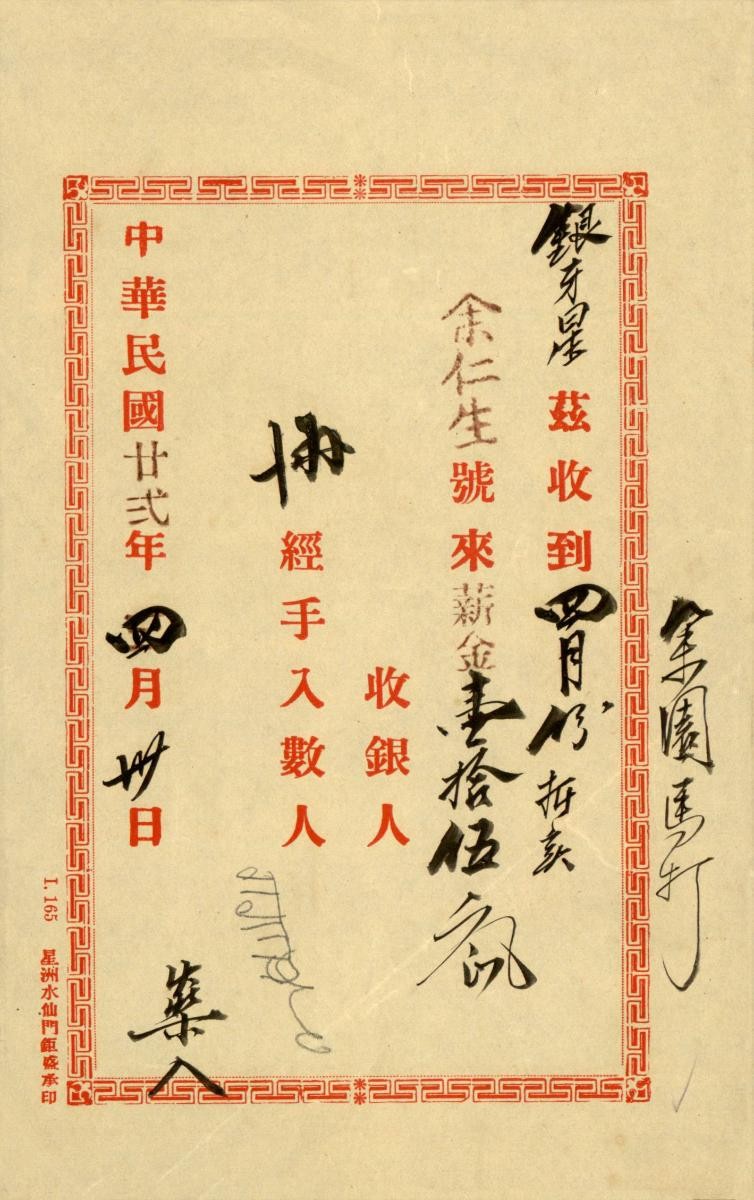 余園馬打
銀牙星 茲收到四月份
余仁生號來薪金壹拾伍
收銀人
經手入數人
中華民國廿弍年四月卅日
入
I. 165 星洲水仙門鉅盛承印